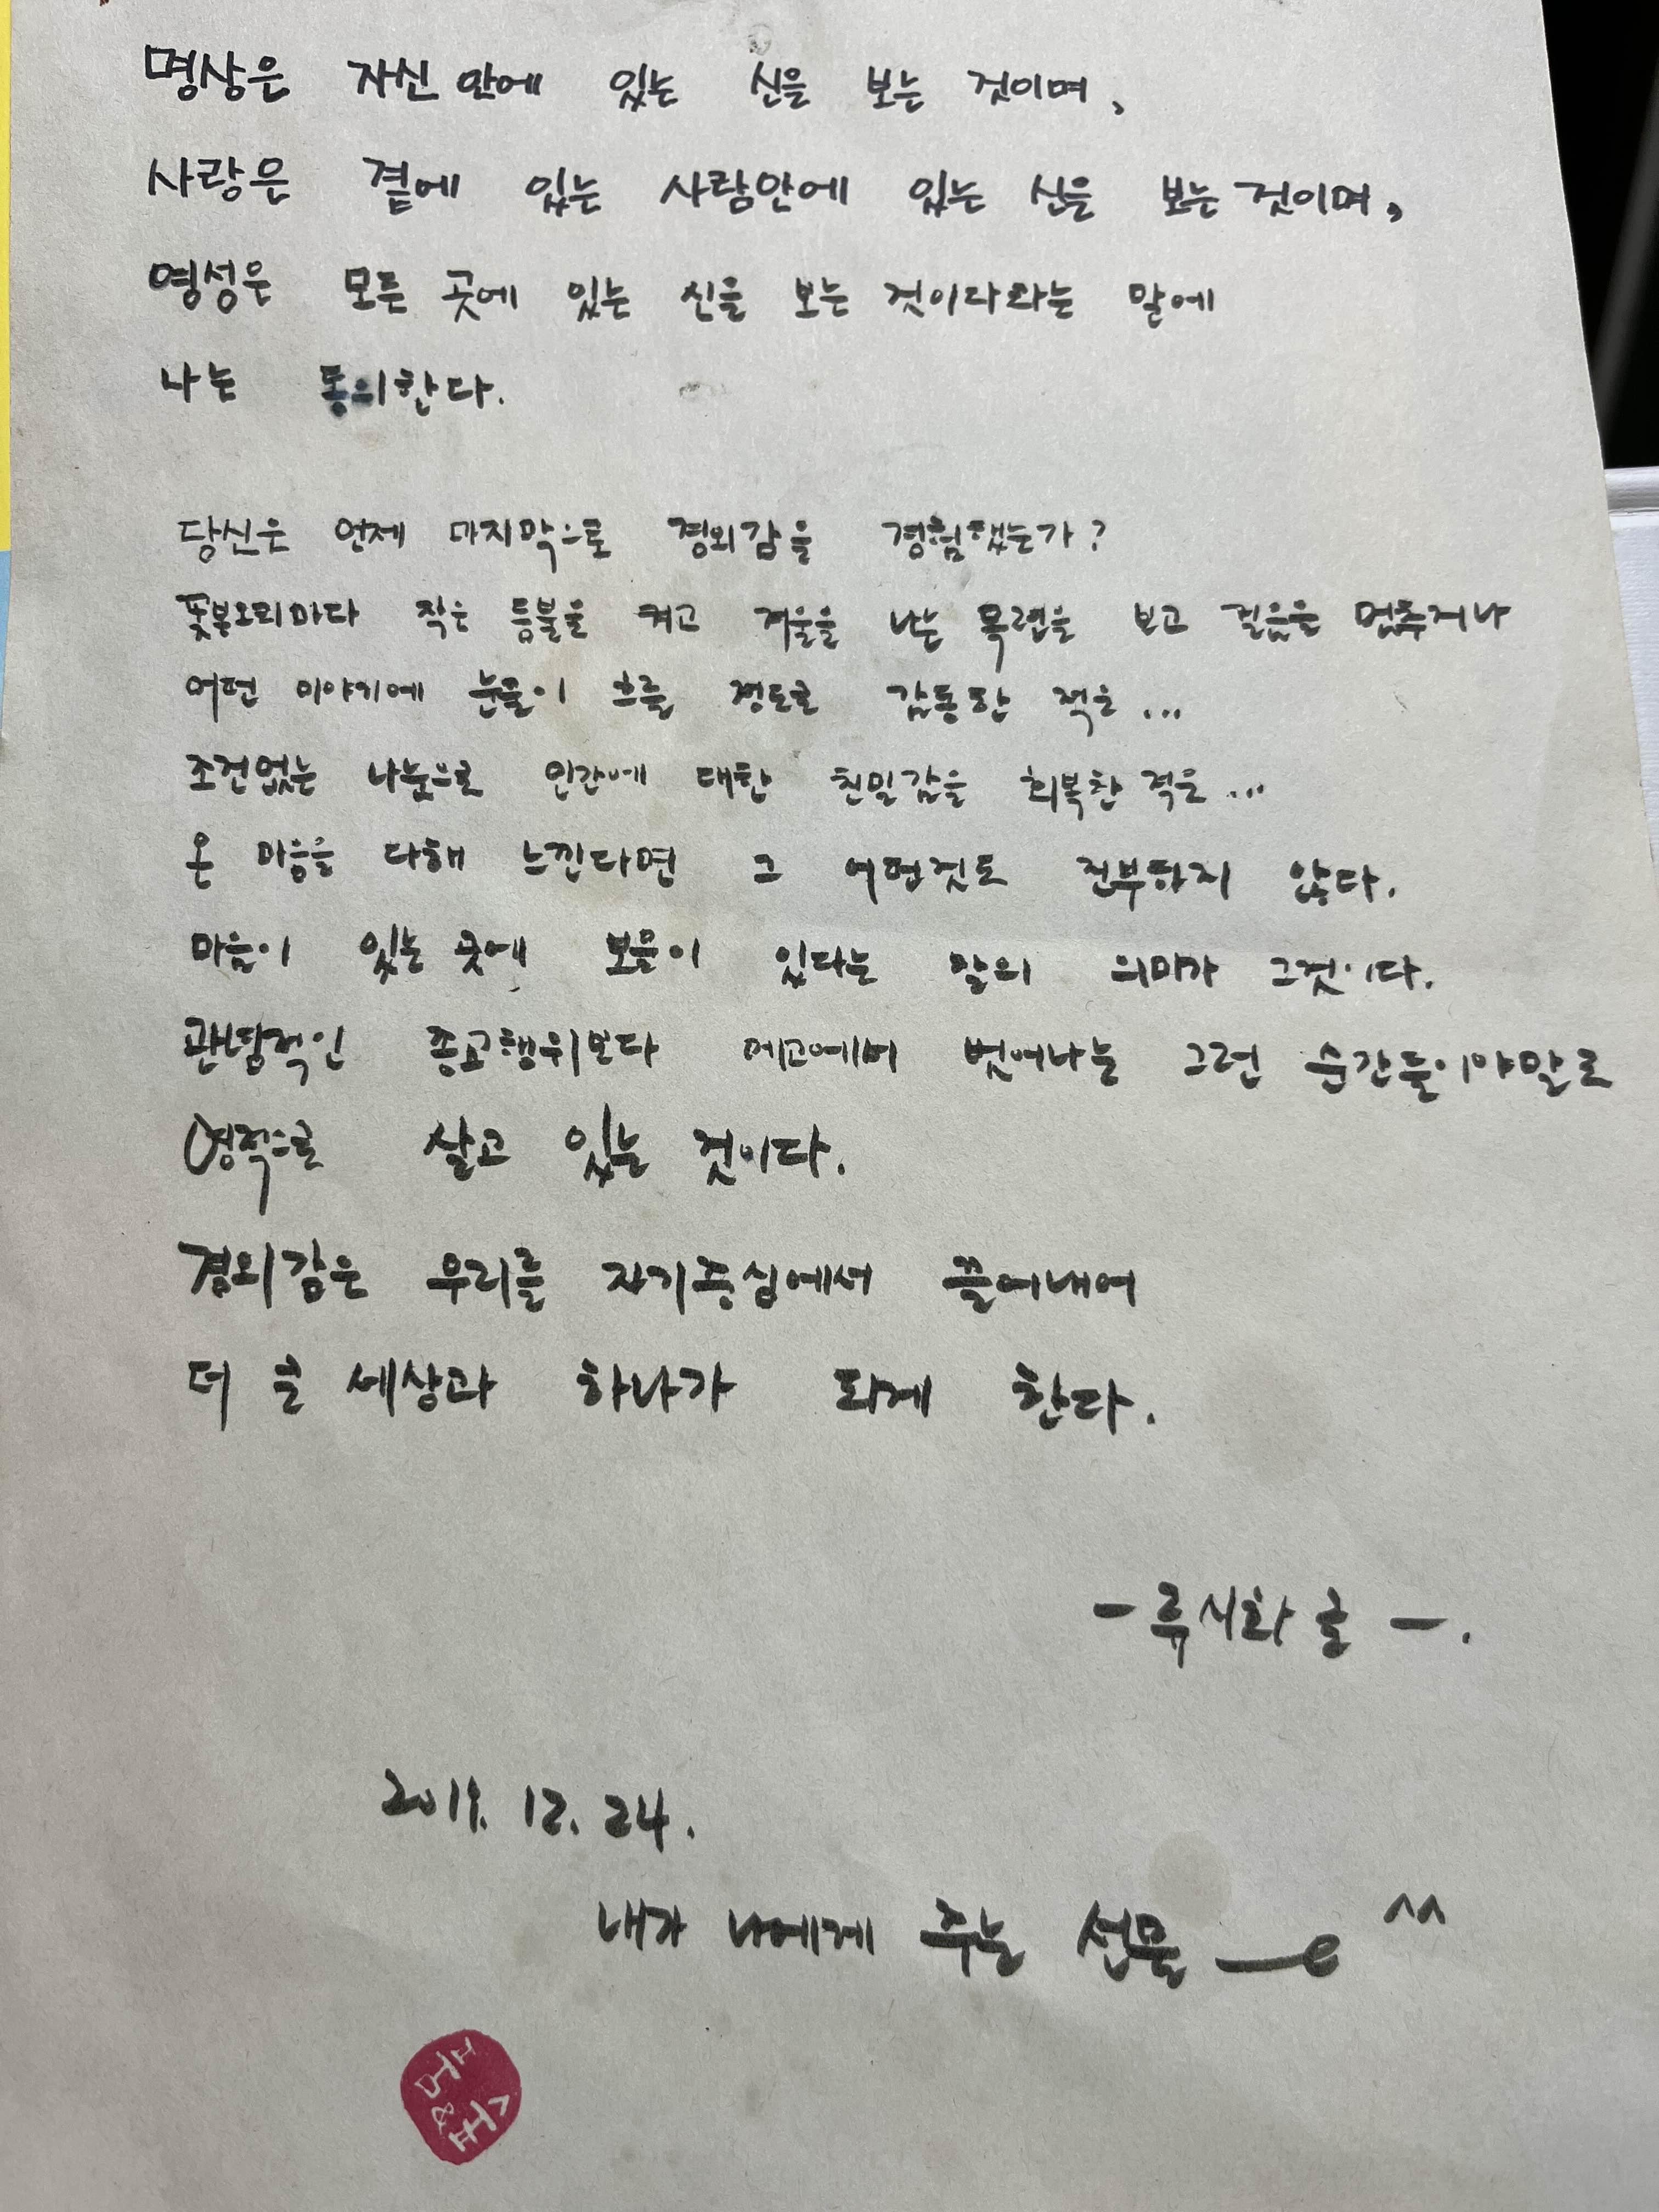 명상은 자신 안에 있는 신을 보는 것이며,
사랑은 곁에 있는 사람안에 있는 신을 보는 것이며,
영성은 모든 곳에 있는 신을 보는 것이다라는 말에
나는 동의한다.
당신은 언제 마지막으로 경외감을 경험했는가?
꽃봉오리마다 작은 등불을 켜고 겨울을 나는 목련을 보고 걸음을 멈추거나
어떤 이야기에 눈물이 흐를 정도로 감동한 적은...
조건없는 나눔으로 인간에 대한 친밀감을 회복한 적은...
온 마음을 다해 느낀다면 그 어떤것도 진부하지 않다.
마음이 있는 곳에 보물이 있다는 말의 의미가 그것이다.
관념적인 종교행위보다 에고에서 벗어나는 그런 순간들이야말로
영적으로 살고 있는 것이다.
경외감은 우리를 자기중심에서 끌어내어
더 큰 세상과 하나가 되게 한다.
- 류시화 글 -.
2019. 12. 24.
내가 나에게 주는 선물 ^^